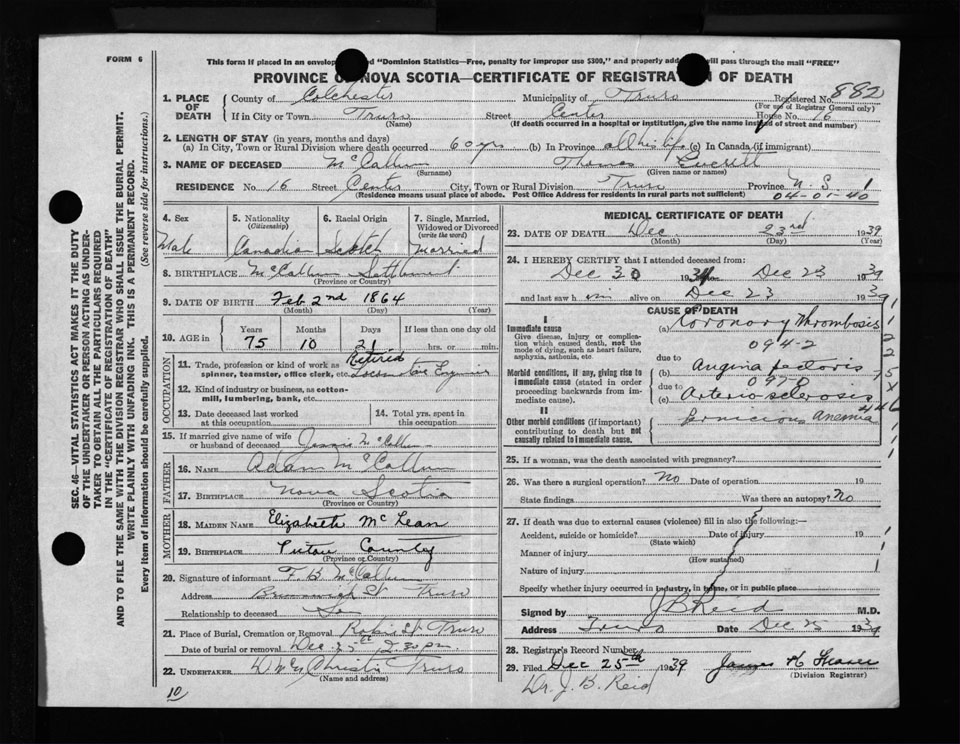 FORM 6
This form if placed in an envelop d "Dominion Statistics—Free, penalty for improper use $300," and properly add will pass through the mail "FREE"
PROVINCE OF NOVA SCOTIA—CERTIFICATE OF REGISTRATION OF DEATH
1. PLACE OF DEATH
County of Colchester Municipality of Truro Registered No. 882
(For use of Registrar General only)
If in City or Town Truro Street Center House No. 16
(Name) (If death occurred in a hospital or institution, give the name instead of street and number)
2. LENGTH OF STAY (in years, months and days)
(a) In City, Town or Rural Division where death occurred 60 yrs (b) In Province all his life (c) In Canada (if immigrant)
3. NAME OF DECEASED McCallum Thomas Everett
(Surname) (Given name or names)
RESIDENCE No. 16 Street Center City, Town or Rural Division Truro Province N.S. 1
(Residence means usual place of abode. Post Office Address for residents in rural parts not sufficient) 04-01-40
SEC. 46—VITAL STATISTICS ACT MAKES IT THE DUTY
OF THE UNDERTAKER OR PERSON ACTING AS UNDER-
TAKER TO OBTAIN ALL THE PARTICULARS REQUIRED
IN THE "CERTIFICATE OF REGISTRATION OF DEATH"
AND TO FILE THE SAME WITH THE DIVISION REGISTRAR WHO SHALL ISSUE THE BURIAL PERMIT.
WRITE PLAINLY WITH UNFADING INK. THIS IS A PERMANENT RECORD.
Every item of information should be carefully supplied. (See reverse side for instructions.)
4. Sex Male
5. Nationality (Citizenship) Canadian
6. Racial Origin Scotch
7. Single, Married, Widowed or Divorced (write the word) Married
8. BIRTHPLACE McCallum Settlement
(Province or Country)
9. DATE OF BIRTH Feb 2nd 1864
(Month) (Day) (Year)
10. AGE in Years 75 Months 10 Days 21 If less than one day old hrs. or min.
OCCUPATION
11. Trade, profession or kind of work as spinner, teamster, office clerk, etc. Retired Locomotive Engineer
12. Kind of industry or business, as cotton-mill, lumbering, bank, etc.
13. Date deceased last worked at this occupation
14. Total yrs. spent in this occupation
15. If married give name of wife or husband of deceased Jennie McCallum
FATHER
16. NAME Adam McCallum
17. BIRTHPLACE Nova Scotia
(Province or Country)
MOTHER
18. MAIDEN NAME Elizabeth McLean
19. BIRTHPLACE Pictou County
(Province or Country)
20. Signature of informant F. B. McCallum
Address Brunswick St Truro
Relationship to deceased Son
21. Place of Burial, Cremation or Removal Robie St Truro
Date of burial or removal Dec. 25th 2.30 p.m.
22. UNDERTAKER Truro
(Name and address)
10
MEDICAL CERTIFICATE OF DEATH
23. DATE OF DEATH Dec 23rd 1939
(Month) (Day) (Year)
24. I HEREBY CERTIFY that I attended deceased from:
Dec 30 19 Dec 23 1939
and last saw him alive on Dec 23 1939
CAUSE OF DEATH
I
Immediate cause
Give disease, injury or complication which caused death, not the mode of dying, such as heart failure, asphyxia, asthenia, etc.
(a) Coronary Thrombosis
094-2
due to
Morbid conditions, if any, giving rise to immediate cause (stated in order proceeding backwards from immediate cause).
(b) Angina pectoris
due to
(c) Arterio sclerosis
II
Other morbid conditions (if important) contributing to death but not causally related to immediate cause.
Pernicious Anemia
25. If a woman, was the death associated with pregnancy?
26. Was there a surgical operation? No Date of operation 19
State findings Was there an autopsy? No
27. If death was due to external causes (violence) fill in also the following:—
Accident, suicide or homicide? Date of injury 19
(State which)
Manner of injury
(How sustained)
Nature of injury
Specify whether injury occurred in industry, in home, or in public place
Signed by J B Reid M.D.
Address Truro Date Dec 25 1939
28. Registrar's Record Number
29. Filed Dec 25th 1939 James
(Division Registrar)
Dr. J. B. Reid